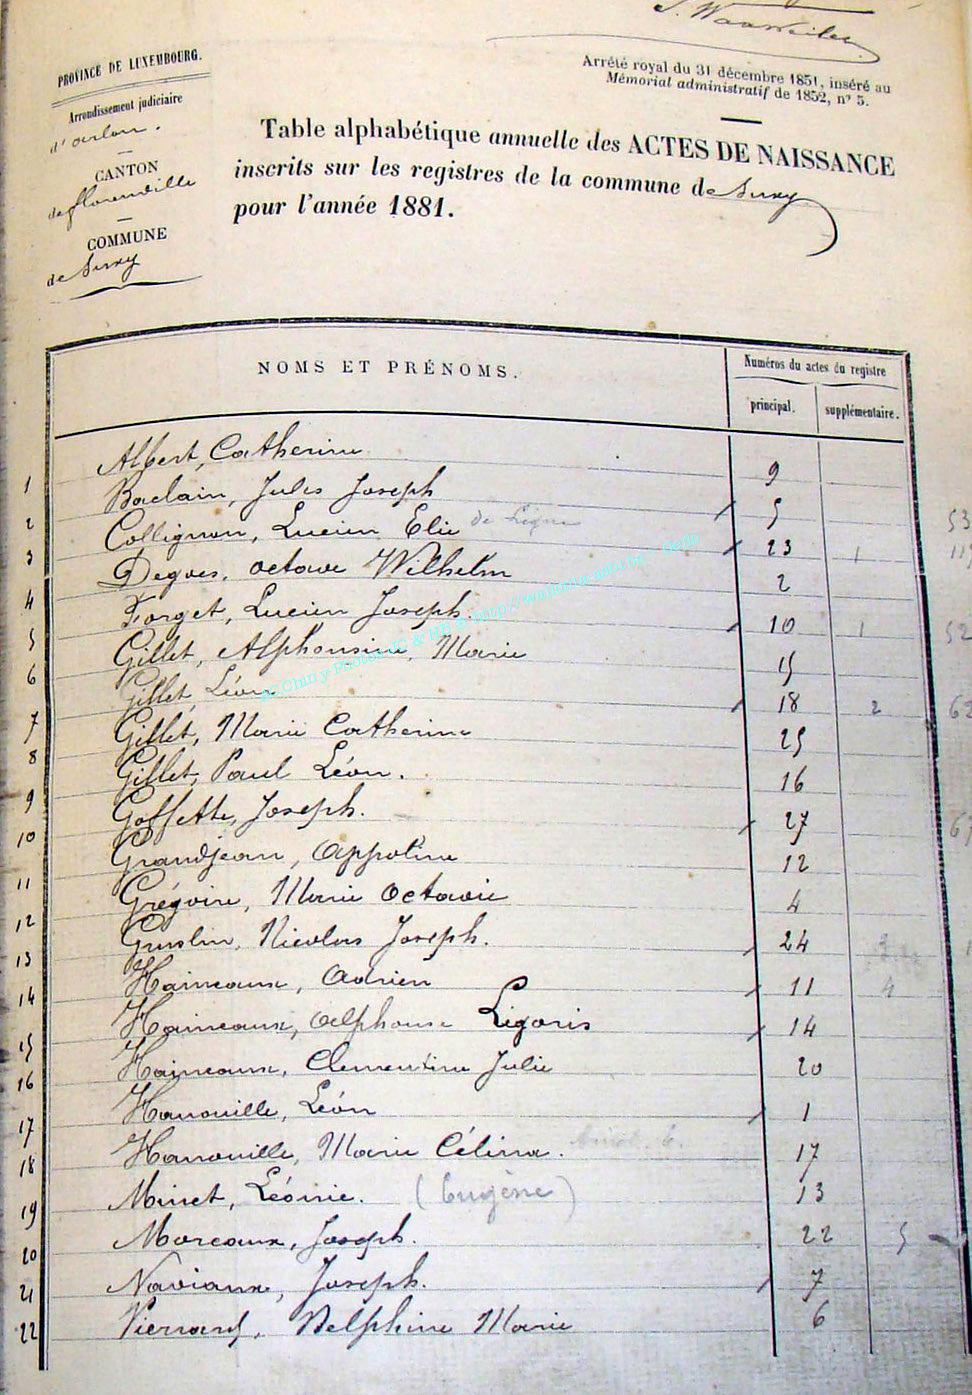 PROVINCE DE LUXEMBOURG.
Arrondissement judiciaire
d'arlon.
CANTON
de florenville
COMMUNE
de Suxy
Arrêté royal du 31 décembre 1851, inséré au
Mémorial administratif de 1852, n° 5.
Table alphabétique annuelle des ACTES DE NAISSANCE
inscrits sur les registres de la commune de Suxy
pour l'année 1881.
NOMS ET PRÉNOMS.
Numéros du actes du registre
principal. supplémentaire.
1 Albert, Catherine 9
2 Baclain, Jules Joseph 5
3 Collignon, Lucien Elie 23 1
4 Degves, octave Wilhelm 2
5 Forget, Lucien Joseph 10 1
6 Gillet, Alphonsine, Marie 15
7 Gillet, Léon 18 2
8 Gillet, Marie Catherine 25
9 Gillet, Paul Léon. 16
10 Goffette, Joseph. 27
11 Grandjean, Appoline 12
12 Grégoire, Marie octavie 4
13 Guislin, Nicolas Joseph. 24
14 Haineaux, Adrien 11 4
15 Haineaux, Alphonse Ligoris 14
16 Haineaux, Clementine Julie 20
17 Hanouille, Léon 1
18 Hanouille, Marie Célina. 17
19 Minet, Léonie. (Eugène) 13
20 Morceaux, Joseph. 22 5
21 Naviaux, Joseph. 7
22 Pierrard, Delphine Marie 6